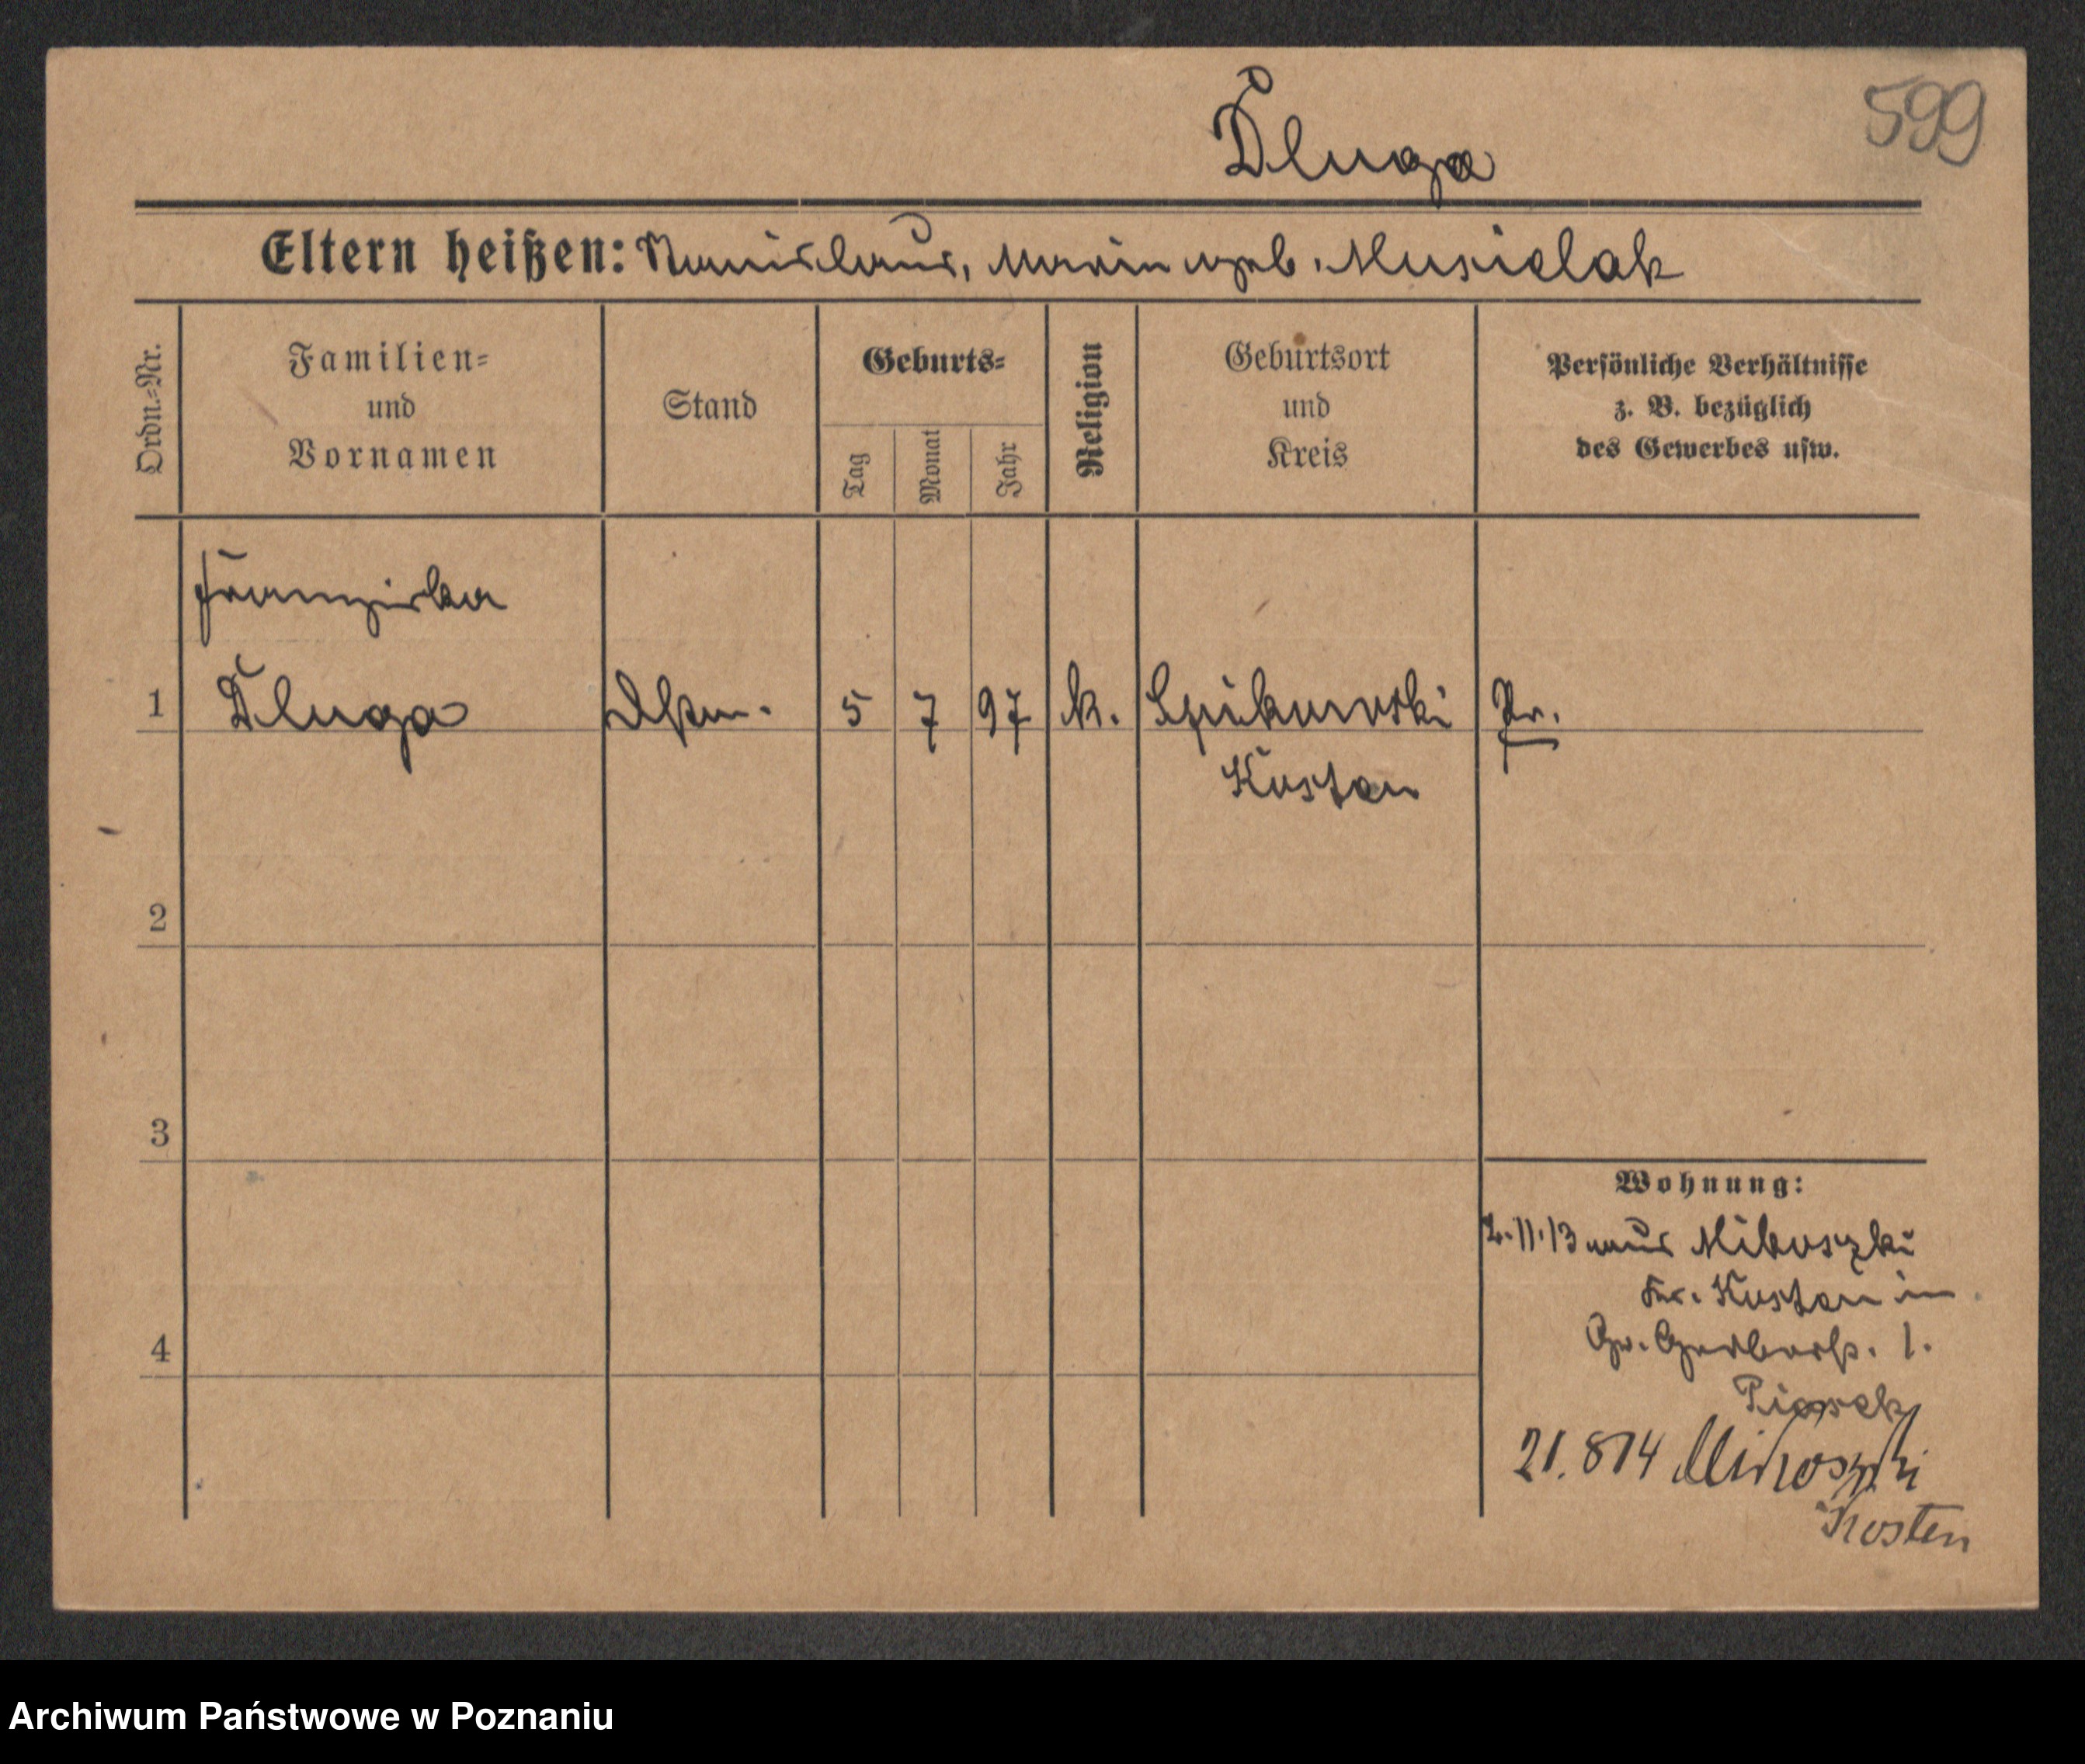 599
Dluga
Eltern heißen: Stanislaus, Maria geb. Musielak
Ordn.=Nr.
Familien=
und
Vornamen
Stand
Geburts=
Tag
Monat
Jahr
Religion
Geburtsort
und
Kreis
Persönliche Verhältnisse
z. B. bezüglich
des Gewerbes usw.
Franziska
1 Dluga 5 7 97 k. Pr.
Kosten
2
3
4
Wohnung:
2.11.13 aus Mikoszki
Kr. Kosten in
Gr. Gerberstr. 1.
Piasek
21.814 Mikoszki
Kosten
Archiwum Państwowe w Poznaniu